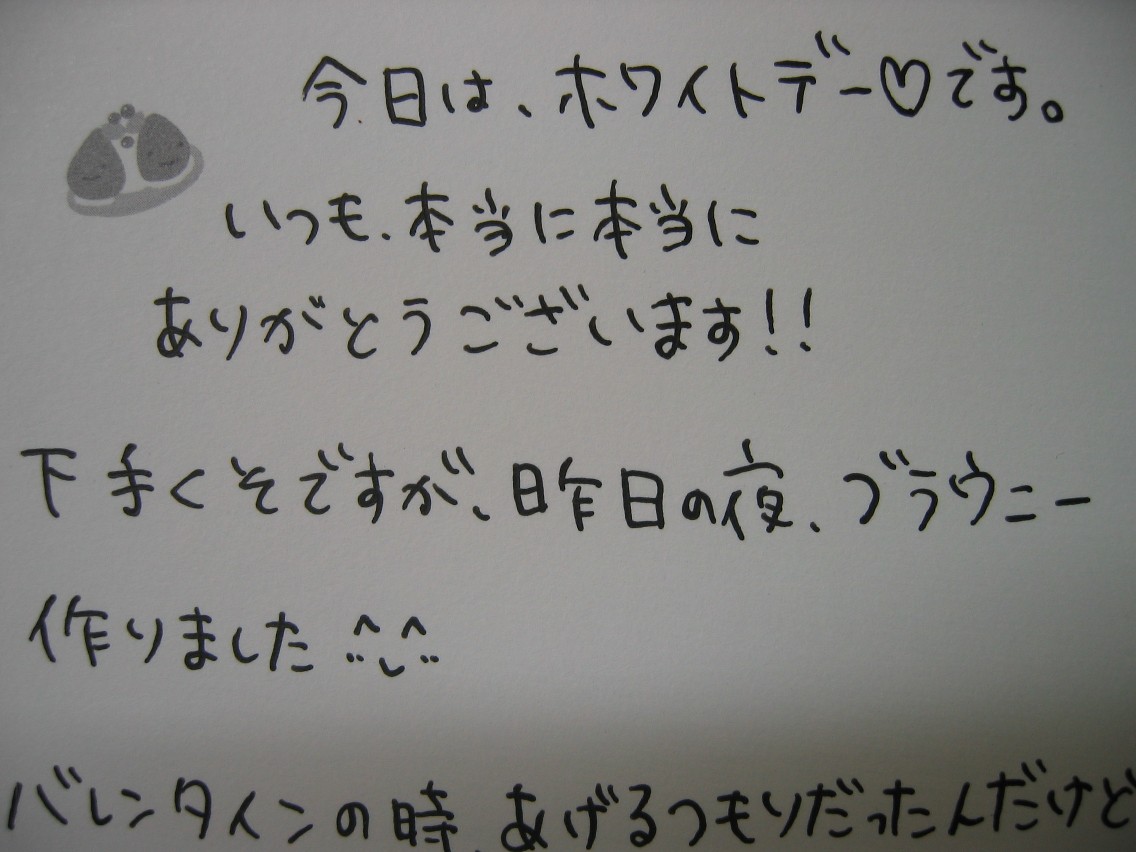 今日は、ホワイトデー♡です。
いつも、本当に本当に
ありがとうございます!!
下手くそですが、昨日の夜、ブラウニー
作りました^^
バレンタインの時、あげるつもりだったんだけど